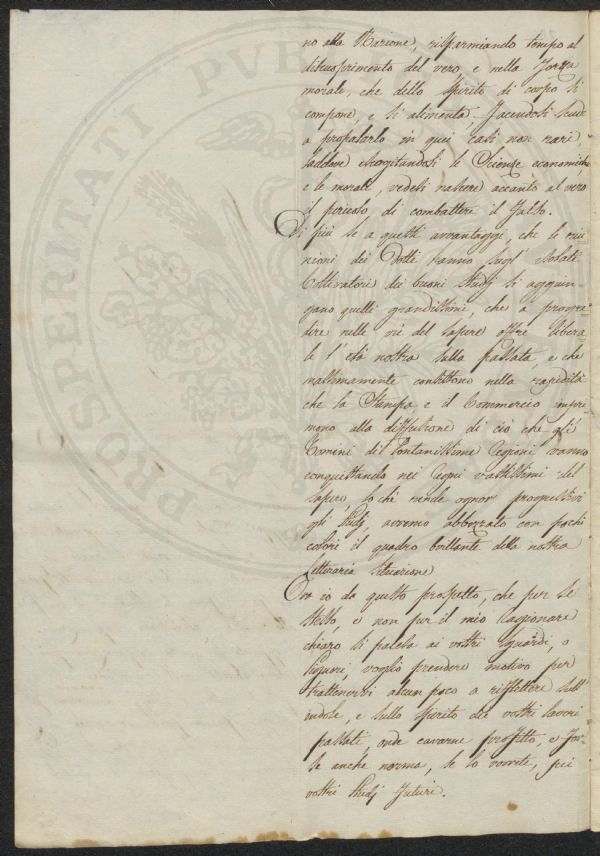 no alla Nazione, risparmiando tempo al
discuoprimento del vero, e nella forza
morale, che dello spirito di corpo si
compone, e si alimenta, facendosi scudo
a propalarlo in quei casi non rari,
laddove esercitandosi le Scienze economiche,
e le morali, vedesi nascere accanto al vero
il pericolo di combattere il falso.
Di più se a questi avvantaggi, che le riu
nioni dei Dotti hanno sugl' Isolati
Coltivatori dei buoni studj si aggiun
gano quelli grandissimi, che a progre=
dire nelle vie del sapere offre libera=
le l' età nostra sulla passata, e che
massimamente consistono nella rapidità
che la Stampa e il Commercio impri
mono alla diffusione di ciò che gli
Uomini di lontanissime Regioni vanno
conquistando nei Regni vastissimi del
sapere, lo chè rende ognor progressivi
gli studj, avremo abbozzato con pochi
colori il quadro brillante della nostra
Letteraria situazione.
Ora io da questo prospetto, che per se
stesso, e non per il mio ragionare
chiaro si palesa ai vostri sguardi, o
Signori, voglio prendere motivo per
trattenervi alcun poco a riflettere sull'
indole, e sullo spirito dei vostri lavori
passati, onde cavarne profitto, e for=
se anche norma, se lo vorrete, pei
vostri studj futuri.
PROSPERITATI PVB